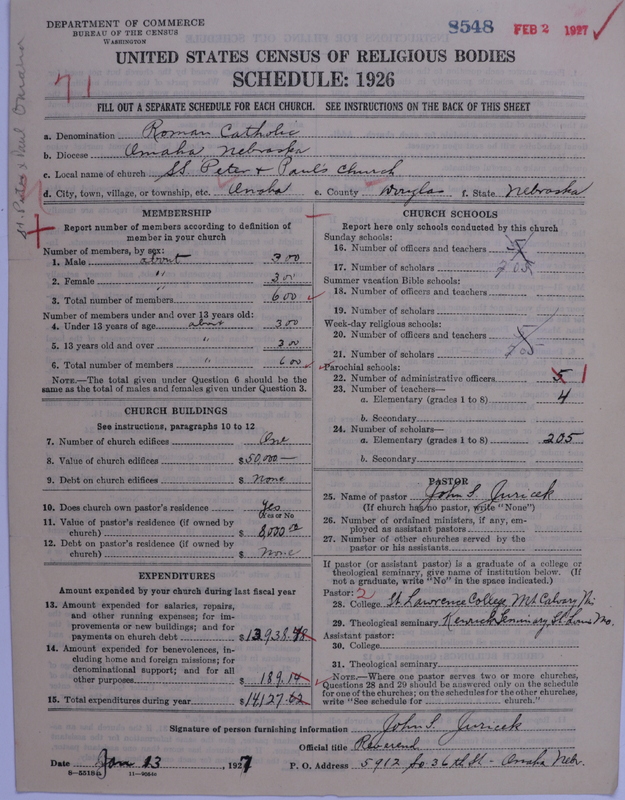 DEPARTMENT OF COMMERCE
BUREAU OF THE CENSUS
WASHINGTON
8548 FEB 2 1927
UNITED STATES CENSUS OF RELIGIOUS BODIES
SCHEDULE: 1926
71
St. Peter & Paul Omaha
FILL OUT A SEPARATE SCHEDULE FOR EACH CHURCH. SEE INSTRUCTIONS ON THE BACK OF THIS SHEET
a. Denomination Roman Catholic
b. Diocese Omaha Nebraska
c. Local name of church SS. Peter & Paul's Church
d. City, town, village, or township, etc. Omaha e. County Douglas f. State Nebraska
MEMBERSHIP
Report number of members according to definition of
member in your church
Number of members, by sex:
1. Male about 300
2. Female " 300
3. Total number of members " 600
Number of members under and over 13 years old:
4. Under 13 years of age about 300
5. 13 years old and over " 300
6. Total number of members " 600
NOTE.—The total given under Question 6 should be the
same as the total of males and females given under Question 3.
CHURCH BUILDINGS
See instructions, paragraphs 10 to 12
7. Number of church edifices One
8. Value of church edifices $50,000—
9. Debt on church edifices $ none
10. Does church own pastor's residence Yes
(Yes or No
11. Value of pastor's residence (if owned by
church) $ 8,000
12. Debt on pastor's residence (if owned by
church) $ none
EXPENDITURES
Amount expended by your church during last fiscal year
13. Amount expended for salaries, repairs,
and other running expenses; for im-
provements or new buildings; and for
payments on church debt $13938.48
14. Amount expended for benevolences, in-
cluding home and foreign missions; for
denominational support; and for all
other purposes 189.14
15. Total expenditures during year $14127.62
CHURCH SCHOOLS
Report here only schools conducted by this church
Sunday schools:
16. Number of officers and teachers 5
17. Number of scholars 205
Summer vacation Bible schools:
18. Number of officers and teachers
19. Number of scholars
Week-day religious schools:
20. Number of officers and teachers 5
21. Number of scholars 205
Parochial schools:
22. Number of administrative officers 5 1
23. Number of teachers—
a. Elementary (grades 1 to 8) 4
b. Secondary
24. Number of scholars—
a. Elementary (grades 1 to 8) 205
b. Secondary
PASTOR
25. Name of pastor John S. Juricek
(If church has no pastor, write "None")
26. Number of ordained ministers, if any, em-
ployed as assistant pastors
27. Number of other churches served by the
pastor or his assistants
If pastor (or assistant pastor) is a graduate of a college or
theological seminary, give name of institution below. (If
not a graduate, write "No" in the space indicated.)
Pastor: 2
28. College St. Lawrence College, Mt Calvary Wis
29. Theological seminary Kenrick Seminary St. Louis Mo.
Assistant pastor:
30. College
31. Theological seminary
NOTE.—Where one pastor serves two or more churches,
Questions 28 and 29 should be answered only on the schedule
for one of the churches; on the schedules for the other churches,
write "See schedule for church."
Signature of person furnishing information John S. Juricek
Official title Reverend
Date Jan 13, 1927 P. O. Address 5912 So 36th St - Omaha Nebr.
8—5518a 11—9064